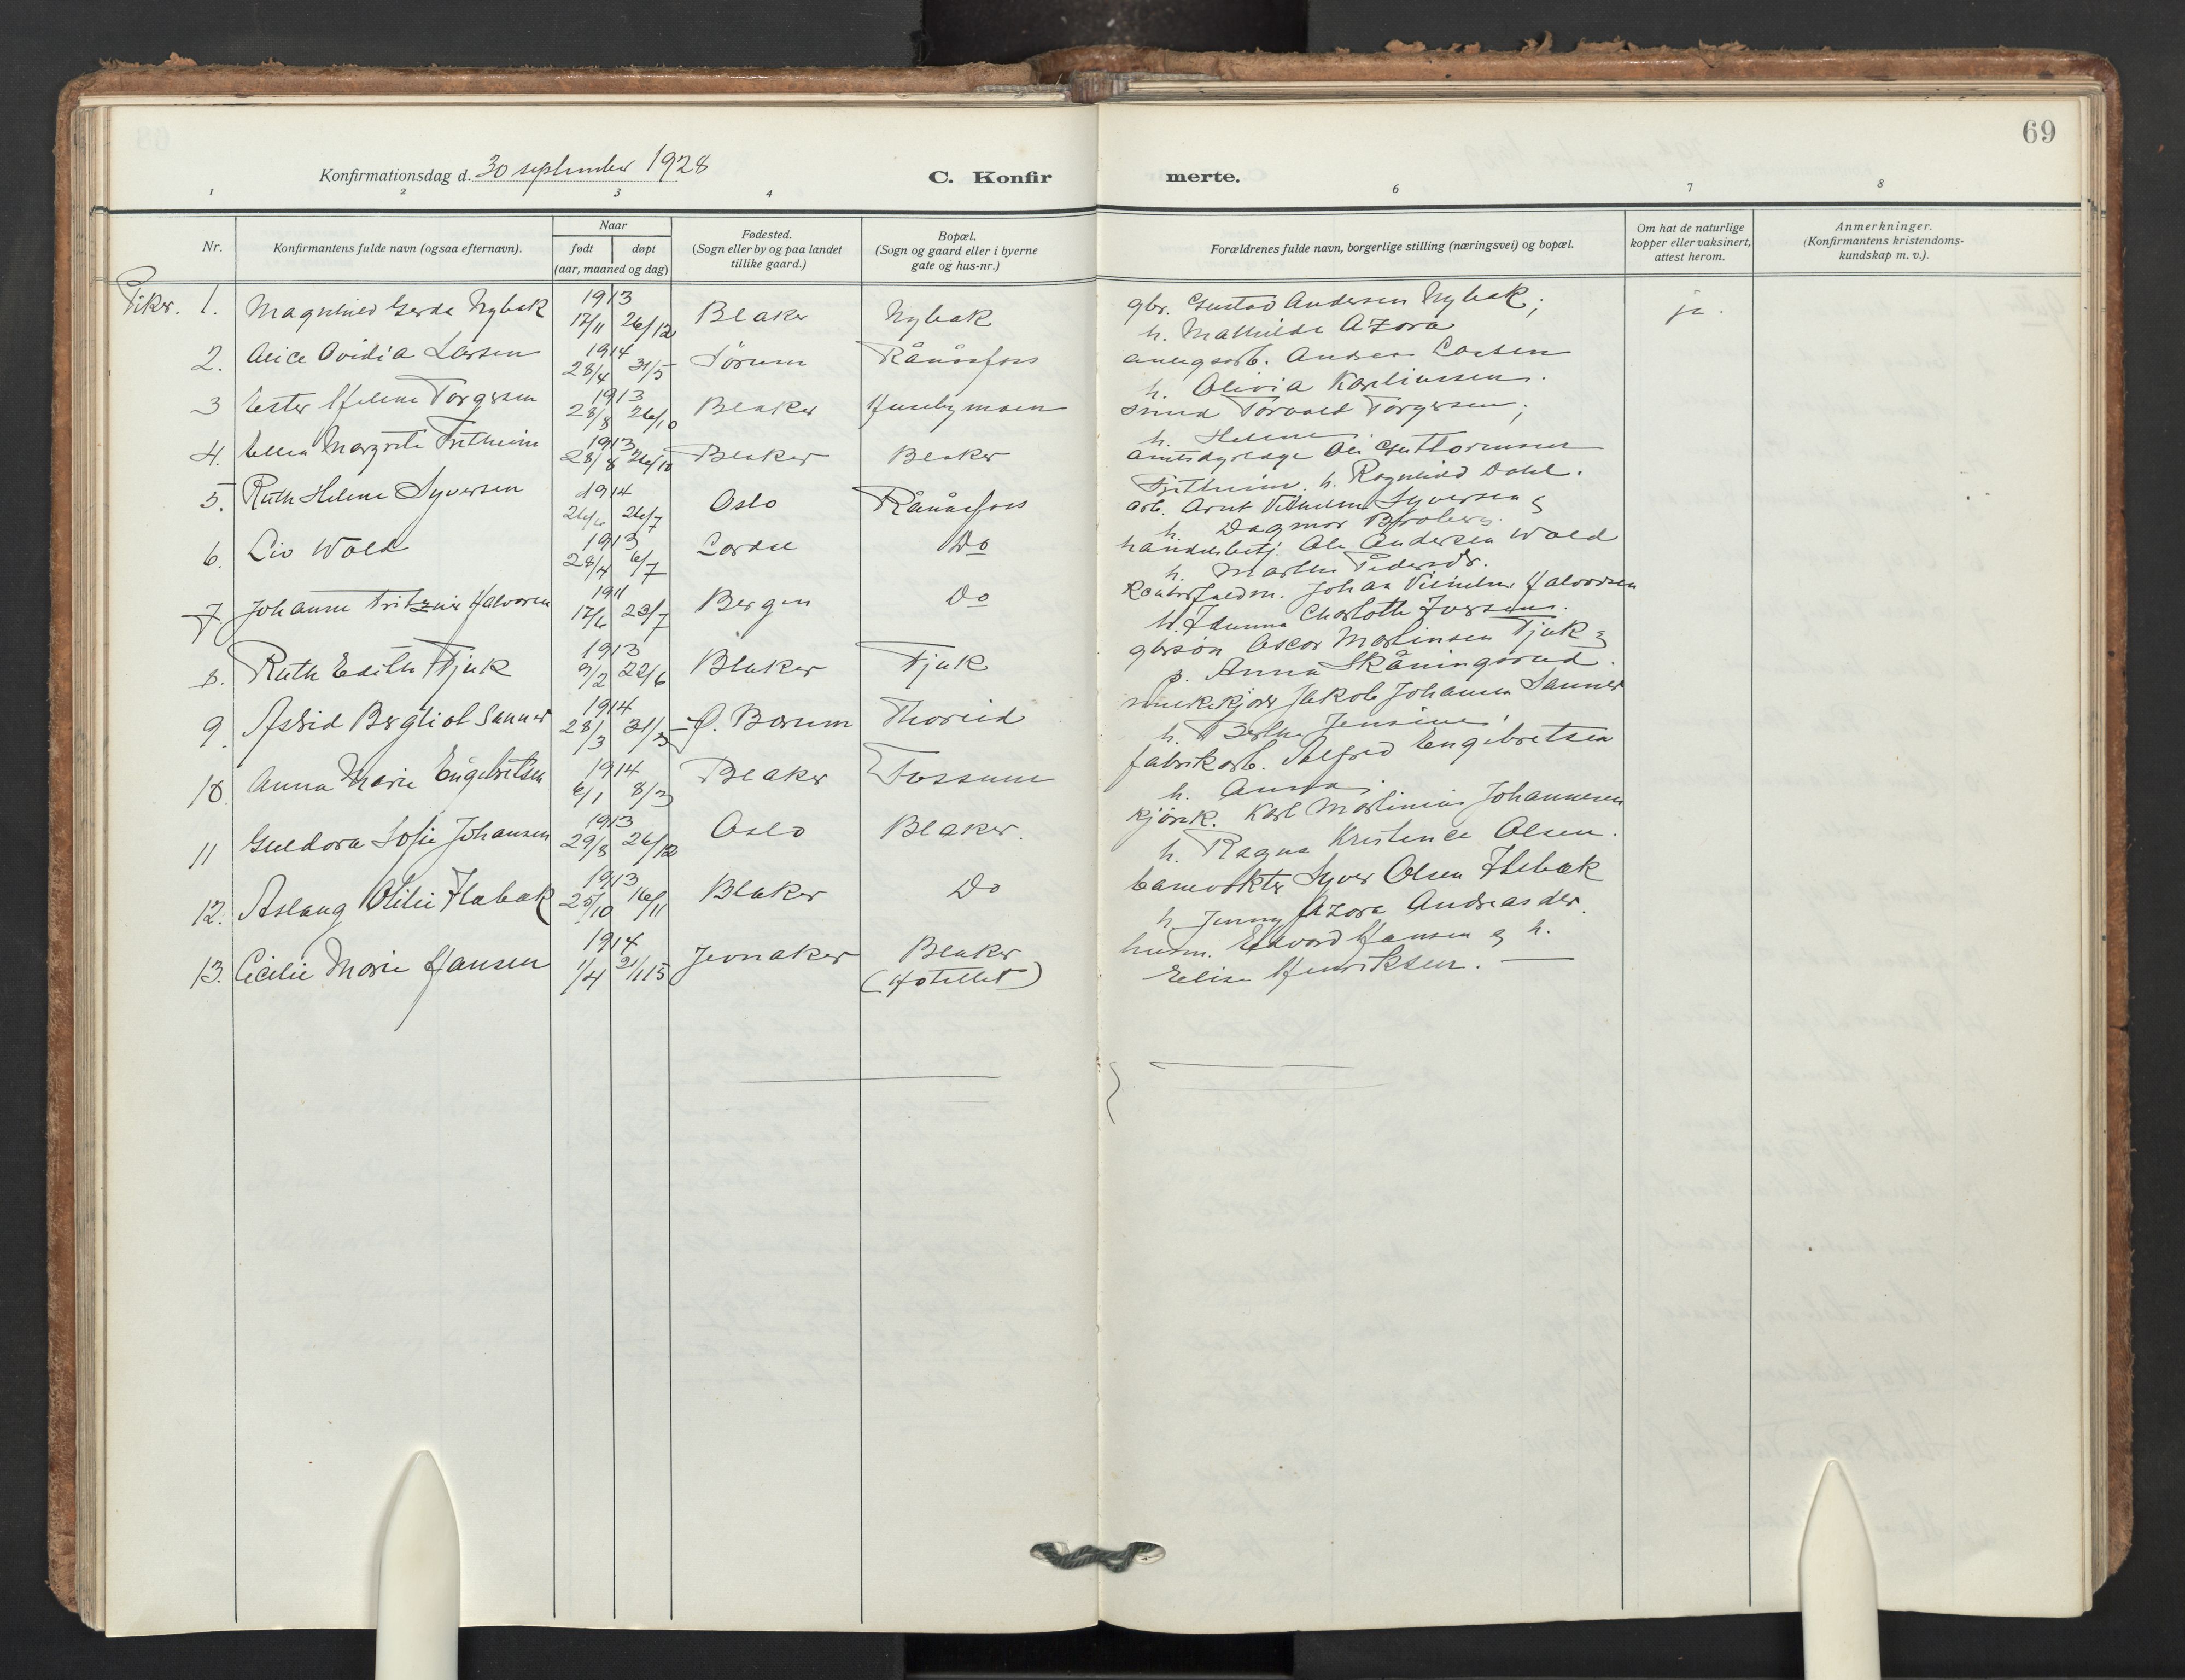 69
Konfirmationsdag d. 30 september 1928
C. Konfir merte.
1 2 3 4 6 7 8
Nr.
Konfirmantens fulde navn (ogsaa efternavn).
Naar
født døpt
(aar, maaned og dag)
Fødested.
(Sogn eller by og paa landet
tillike gaard.)
Bopæl.
(Sogn og gaard eller i byerne
gate og hus-nr.)
Forældrenes fulde navn, borgerlige stilling (næringsvei) og bopæl.
Om hat de naturlige
kopper eller vaksinert,
attest herom.
Anmerkninger.
(Konfirmantens kristendoms-
kundskap m. v.).
Piker. 1. Magnhild Gerda Nybak 1913 17/11 26/12 Blaker Nybak gbr. Gustav Andersen Nybak; ja.
h. Mathilde Azora
2. Alice Ovidia Larsen 1914 28/4 31/5 Sørum Rånåsfoss anlegsarb. Andreas Larsen
h. Olivia Karlinussen.
3 Ester Helene Torgersen 1913 28/8 26/10 Blaker Husebymoen smed Torvald Torgersen;
h. Helene
4. Ellen Margrete Fritheim 1913 28/8 26/10 Blaker Blaker amtsdyrlæge Ole Guttormsen
Fritheim. h. Ragnhild Dahl.
5. Ruth Helene Syversen 1914 26/6 26/7 Oslo Rånåsfoss arb. Arnt Vilhelm Syversen &
h. Dagmar
6. Liv Wold 1913 28/4 6/7 Do handelsbetj. Ole Andersen Wold
h. Marthe Pedersdr.
7. Johanne Halvorsen 1911 17/6 23/7 Bergen Do Johan Vilhelm Halvorsen
h. Charlotte Iversen.
8. Ruth Edith Tjuk 1913 9/2 22/6 Blaker Tjuk gbrsøn Oscar Martinsen Tjuk &
p. Anna Skåningsrud.
9. Astrid Bergliot Sanner 1914 28/3 31/5 Ø. Bærum Jakob Johansen Sanner
h. Berthe Jensine
10. Anna Marie Engebretsen 1914 6/1 8/3 Blaker Fossum fabrikarb. Alfred Engebretsen
h. Anna
11 Guldora Sofie Johansen 1913 29/8 26/12 Oslo Blaker. Karl Martinius Johannesen
h. Ragna Kristence Olsen.
12. Aslaug Otilie Flebak 1913 25/10 16/11 Blaker Do banevokter Syver Olsen Flebak
h. Jenny Azora Andreasdtr.
13. Cecilie Marie Hansen 1914 1/4 21/1 15 Jevnaker Blaker husm. Edvard Hansen & h.
(Hotellet) Elise Henriksen.